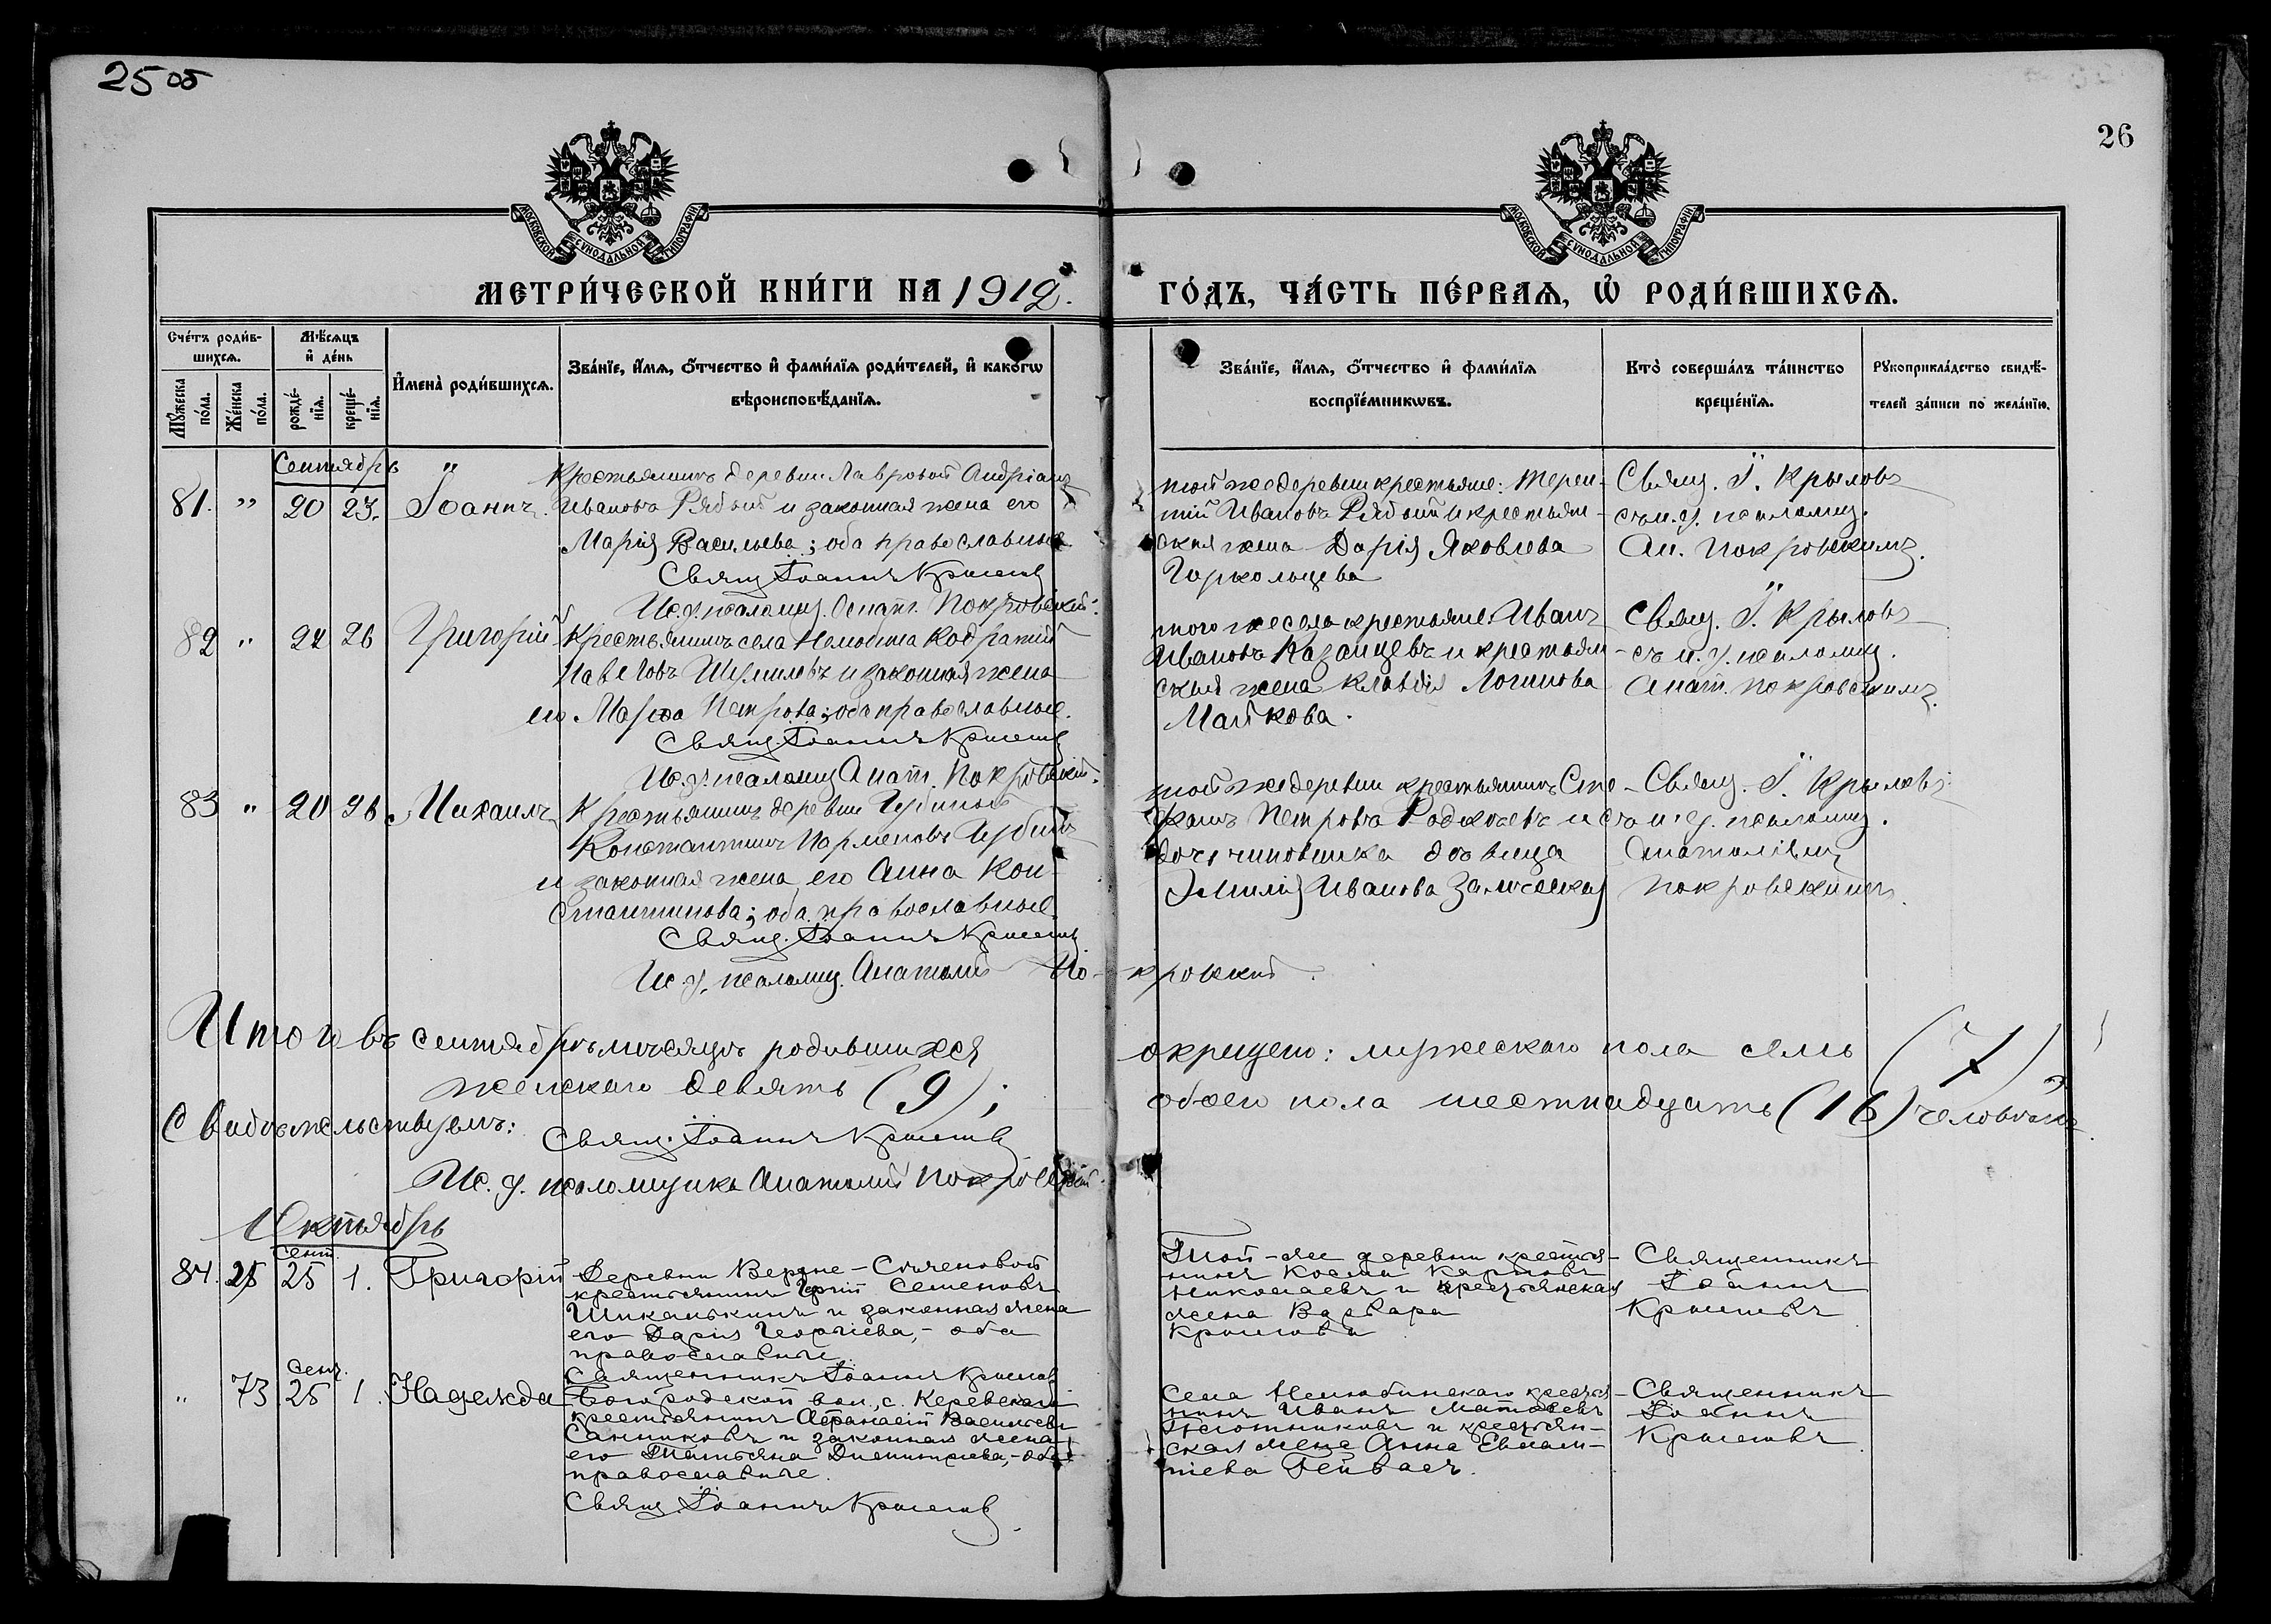 25 об
26
МОСКОВСКОЙ СѴНОДАЛЬНОЙ ТИПОГРАФІИ
МОСКОВСКОЙ СѴНОДАЛЬНОЙ ТИПОГРАФІИ
МЕТРИ́ЧЕСКОЙ КНИ́ГИ НА 1912.
ГО́ДЪ, ЧА́СТЬ ПЕ́РВАѦ, Ѡ҆ РОДИ́ВШИХСѦ.
Сче́тъ роди́в-
шихсѧ.
Мꙋ́жеска по́ла.
Же́нска по́ла.
Мѣ́сѧцъ
и҆ де́нь
рожде́-
нїѧ.
креще́-
нїѧ.
И҆мена̀ роди́вшихсѧ.
Зва́нїе, и҆́мѧ, ѻ҆́тчество и҆ фами́лїѧ роди́телей, и҆ како́гѡ
вѣроисповѣ́данїѧ.
Зва́нїе, и҆́мѧ, ѻ҆́тчество и҆ фами́лїѧ
воспрїе́мникѡвъ.
Кто̀ соверша́лъ та́инство
креще́нїѧ.
Рꙋкоприкла́дство свидѣ́-
телей за́писи по жела́нїю.
Сентябрь
81. " 20 23. Іоаннъ.
Крестьянинъ деревни Лавровой Андріанъ
Ивановъ Рябый и законная жена его
Марія Васильева; оба православные
Свящ. Іоаннъ Крыловъ
И.д. псаломщ. Анат. Покровскій.
той же деревни крестьяне: Терен-
тій Ивановъ Рябый и крестьян-
ская жена Дарія Яковлева
Горкольцева
Свящ. І. Крыловъ
съ и.д. псаломщ.
Ан. Покровскимъ.
82 " 22 26 Григорій
Крестьянинъ села Нелюбина Кодратій
Павловъ Шумиловъ и законная жена
его Марфа Петрова; оба православные.
Свящ. Іоаннъ Крыловъ
И.д. псаломщ. Анат. Покровскій.
того же села крестьяне: Иванъ
Ивановъ Казанцевъ и крестьян-
ская жена Клавдія Логинова
Майкова.
Свящ. І. Крыловъ
съ и.д. псаломщ.
Анат. Покровскимъ.
83 " 20 26 Михаилъ
Крестьянинъ деревни Губиной
Константинъ Парменовъ Губинъ
и законная жена его Анна Кон-
стантинова; оба православные
Свящ. Іоаннъ Крыловъ
И.д. псаломщ. Анатолій По-
кровскій.
той же деревни крестьянинъ Сте-
фанъ Петровъ Родюковъ и
дочь чиновника дѣвица
Эмилія Иванова
Свящ. І. Крыловъ
съ и.д. псаломщ.
Анатоліемъ
Покровскимъ.
Итого въ сентябрѣ мѣсяцѣ родившихся
окрещено: мужескаго пола семь (7)
женскаго девять (9);
обоего пола шестнадцать (16) человѣкъ.
Свидѣтельствуемъ:
Свящ. Іоаннъ Крыловъ
И. д. псаломщика Анатолій Покровскій.
Октябрь
84. 25 Сент. 25 1. Григорій
Деревни Верхне-Сѣченовой
крестьянинъ Семеновъ
Шикалькинъ и законная жена
его Дарія Георгіева, - оба
православные.
Священникъ Іоаннъ Крыловъ
Той-же деревни крестья-
нинъ Косма Карповъ
Николаевъ и крестьянская
жена Варвара
Крылова
Священникъ
Іоаннъ
Крыловъ
" 73 Сент. 25 1. Надежда
Богородской вол., с. Керевскаго
крестьянинъ Аѳанасій Васильевъ
Санниковъ и законная жена
его Татьяна Димитріева, - оба
православные.
Свящ. Іоаннъ Крыловъ.
Села Нелюбинскаго крестья-
нинъ Иванъ Матѳеевъ
Плотниковъ и крестьян-
ская жена Анна Евлам-
піева
Священникъ
Іоаннъ
Крыловъ